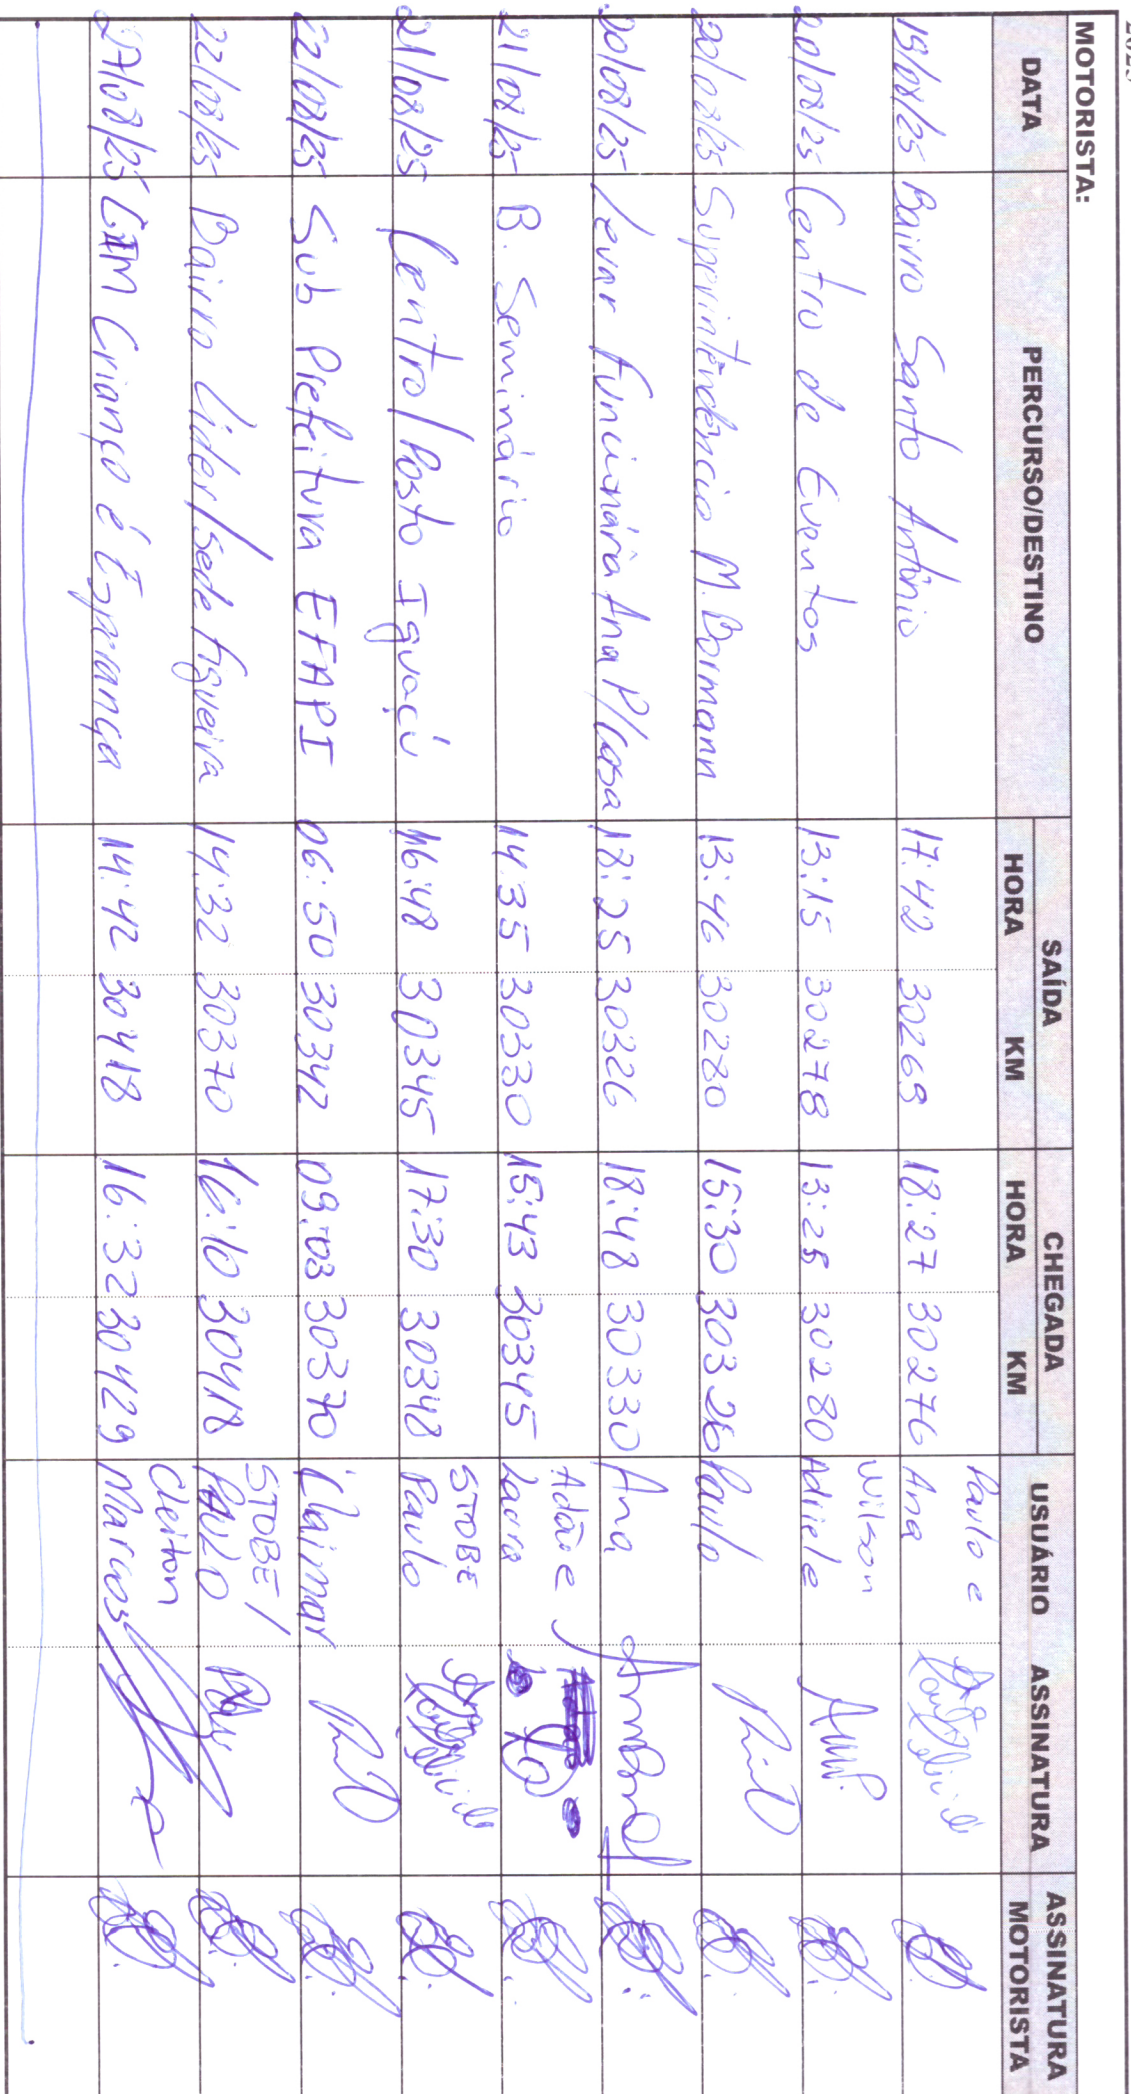 MOTORISTA:
DATA PERCURSO/DESTINO SAÍDA CHEGADA USUÁRIO ASSINATURA ASSINATURA MOTORISTA
HORA KM HORA KM
19/08/25 Bairro Santo Antônio 17:42 30269 18:27 30276 Paulo e Ana
20/08/25 Centro de Eventos 13:15 30278 13:25 30280 Wilson Adriele
20/08/25 Superintendencia M. Bormann 13:46 30280 15:30 30326 Paulo
20/08/25 Levar funcionária Ana P/casa 18:25 30326 18:48 30330 Ana
21/08/25 B. Seminário 14:35 30330 15:43 30345 Adão e Laura
21/08/25 Centro/Posto Iguaçú 16:48 30345 17:30 30348 STOBE Paulo
22/08/25 Sub Prefeitura EFAPI 06:50 30342 09:03 30370 Claimar
22/08/25 Bairro Lider/sede figueira 14:32 30370 16:10 30418 STOBE/ PAULO
27/08/25 CEIM Criança é Esperança 14:42 30418 16:32 30429 Cleiton Marcos